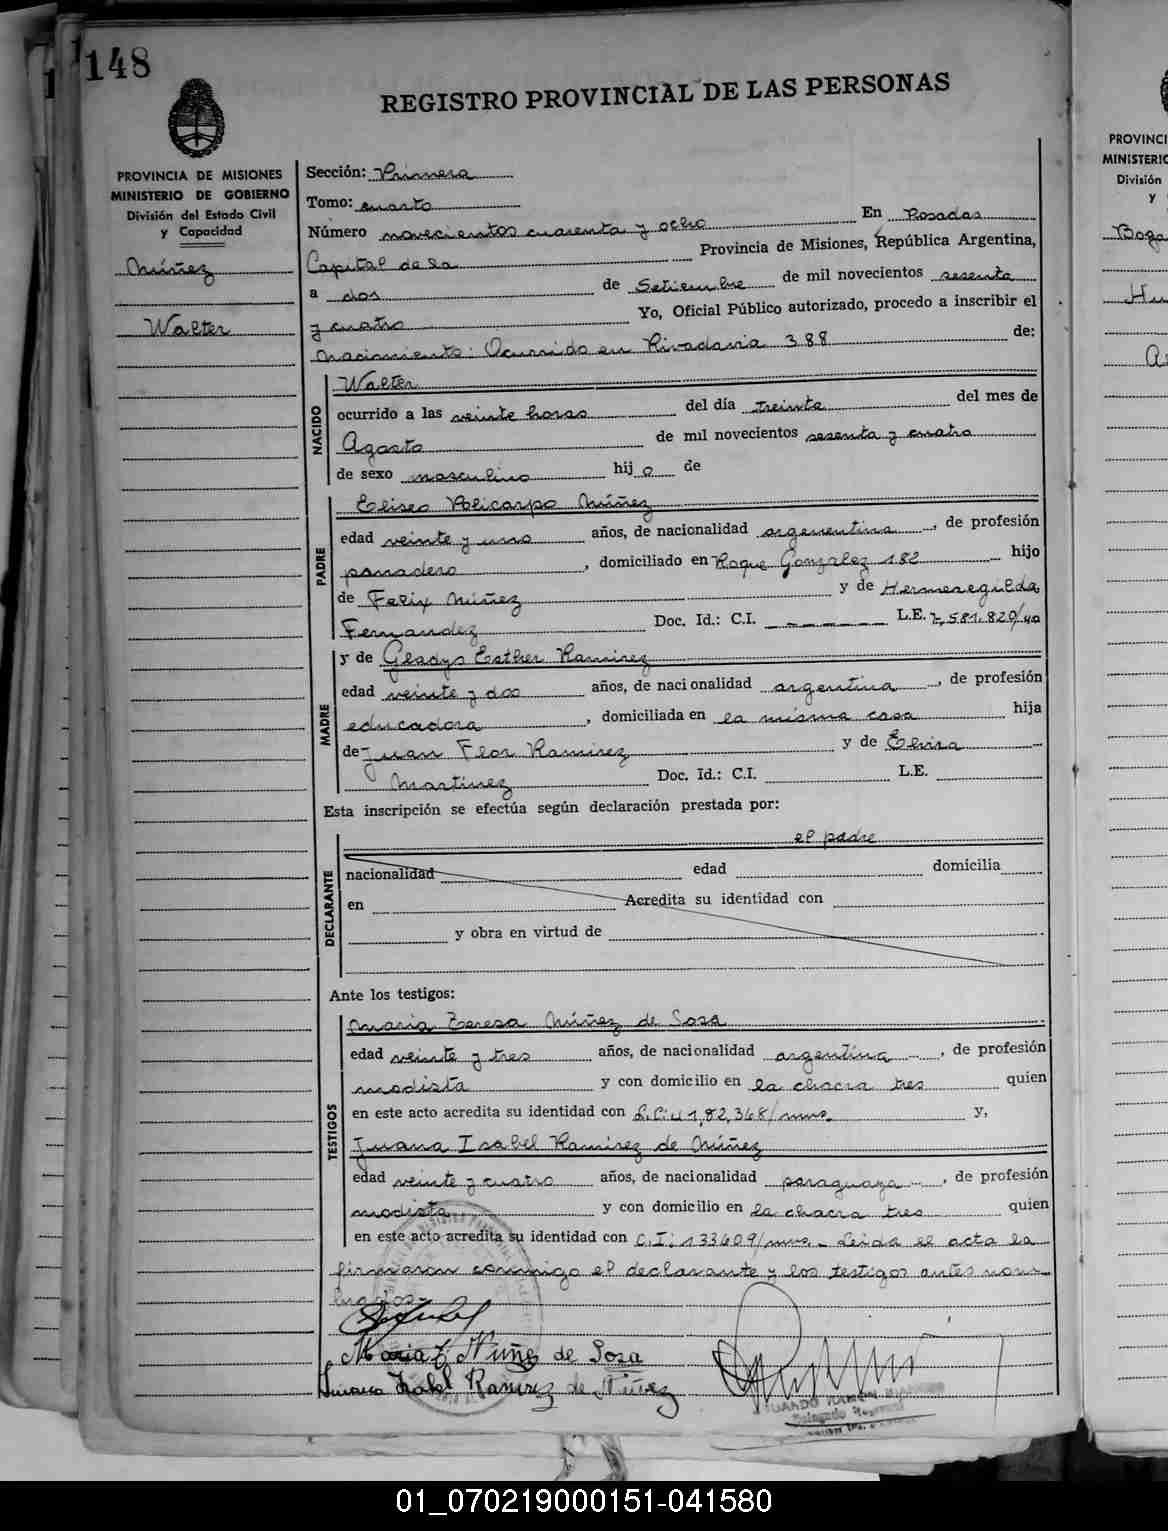 148
REGISTRO PROVINCIAL DE LAS PERSONAS
PROVINCIA DE MISIONES
MINISTERIO DE GOBIERNO
División del Estado Civil
y Capacidad
Núñez
Walter
Sección: Primera
Tomo: cuarto
Número novecientos cuarenta y ocho En Posadas
Capital de la Provincia de Misiones, República Argentina,
a dos de Setiembre de mil novecientos sesenta
y cuatro Yo, Oficial Público autorizado, procedo a inscribir el
nacimiento: Ocurrido en Rivadavia 388 de:
NACIDO
Walter
ocurrido a las veinte horas del día treinta del mes de
Agosto de mil novecientos sesenta y cuatro
de sexo masculino hijo de
PADRE
Eliseo Policarpo Núñez
edad veinte y uno años, de nacionalidad argenentina, de profesión
panadero, domiciliado en Roque Gonzalez 182 hijo
de Felix Núñez y de Hermenegilda
Fernandez Doc. Id.: C.I. L.E. 7,581.820/
MADRE
y de Gladys Esther Ramirez
edad veinte y dos años, de nacionalidad argentina, de profesión
educadora, domiciliada en la misma casa hija
de Juan Flor Ramirez y de Elvira
Martinez Doc. Id.: C.I. L.E.
Esta inscripción se efectúa según declaración prestada por:
DECLARANTE
el padre
nacionalidad edad domicilia
en Acredita su identidad con
y obra en virtud de
Ante los testigos:
TESTIGOS
Maria Teresa Núñez de Sosa
edad veinte y tres años, de nacionalidad argentina, de profesión
modista y con domicilio en la chacra tres quien
en este acto acredita su identidad con y,
Juana Isabel Ramirez de Núñez
edad veinte y cuatro años, de nacionalidad paraguaya, de profesión
modista y con domicilio en la chacra tres quien
en este acto acredita su identidad con C.I: 133609/mnes. - Leida el acta la
firmaron conmigo el declarante y los testigos antes nom-
brados-
Maria T Núñez de Sosa
Juana Isabel Ramirez de Núñez
RAMON
Delegado
PROVINCI
MINISTERIO
División
y
Boga
01_070219000151-041580